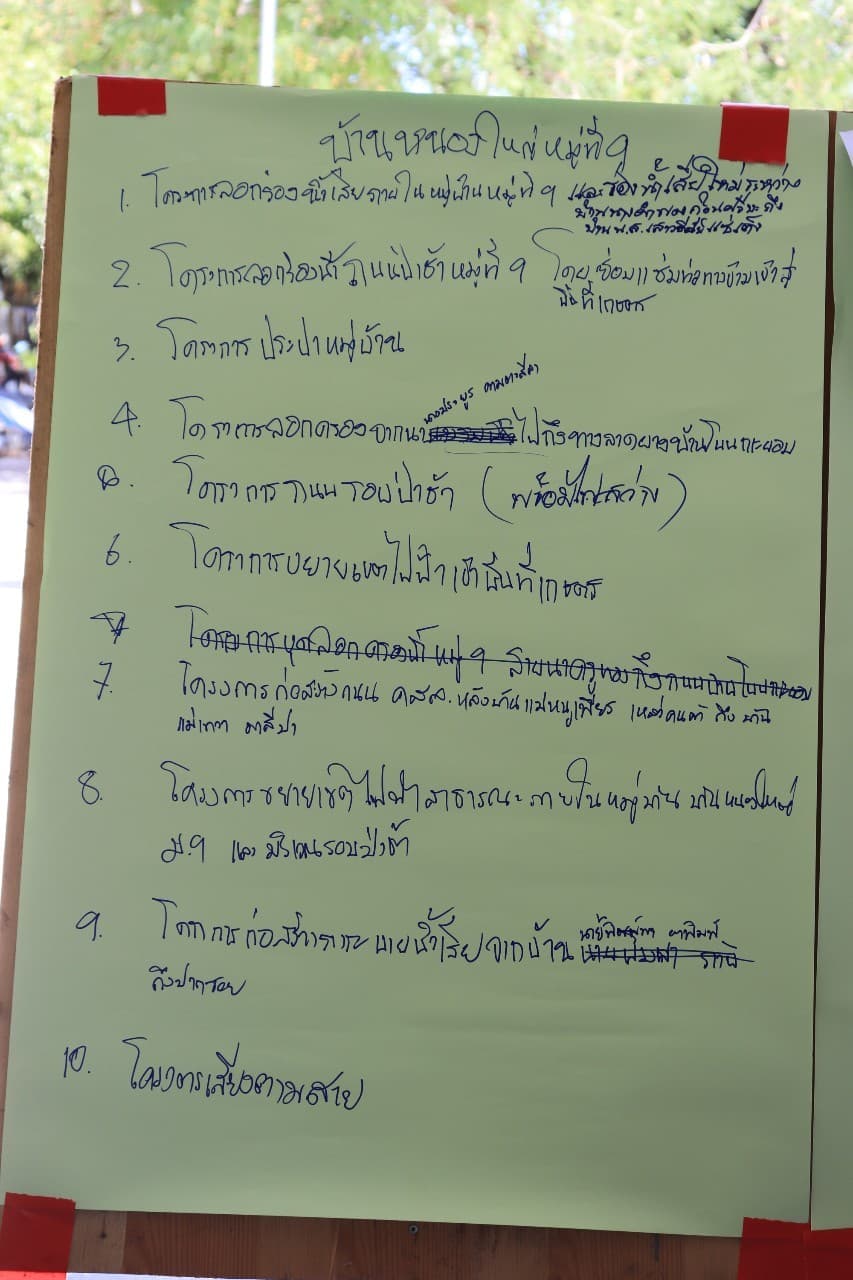 บ้านหนองใหญ่ หมู่ที่ 9
1. โครงการลอกร่องน้ำเสียภายในหมู่บ้านหมู่ที่ 9 และร่องน้ำเสียใหม่ระหว่าง
ถึง
บ้าน น.ส.
2. โครงการลอกร่องน้ำถนนป่าช้าหมู่ที่ 9 โดยเชื่อมแซ่มท่อทางข้ามเข้าสู่
พื้นที่เกษตร
3. โครงการประปาหมู่บ้าน
นางประยูร
4. โครงการลอกครองจากนา ไปถึงทางลาดยางบ้านโนนกะยอม
5. โครงการถนนรอบป่าช้า (พร้อมไฟสว่าง)
6. โครงการขยายเขตไฟฟ้าเข้าพื้นที่เกษตร
7 โครงการขุดลอกครองน้ำหมู่ 9 สายนาครูทองถึงถนนบ้านโนนกะยอม
7. โครงการก่อสร้างถนน คสล. หลังบ้านแม่หนูเพียร เหล่าคนตา ถึง บ้าน
แม่เทวา ตาสีปา
8. โครงการขยายเขตไฟฟ้าสาธารณะภายในหมู่บ้าน บ้านหนองใหญ่
ม.9 และบริเวณรอบป่าช้า
9. โครงการก่อสร้างรางระบายน้ำเสียจากบ้าน
ถึงปากซอย
10. โครงการเสียงตามสาย